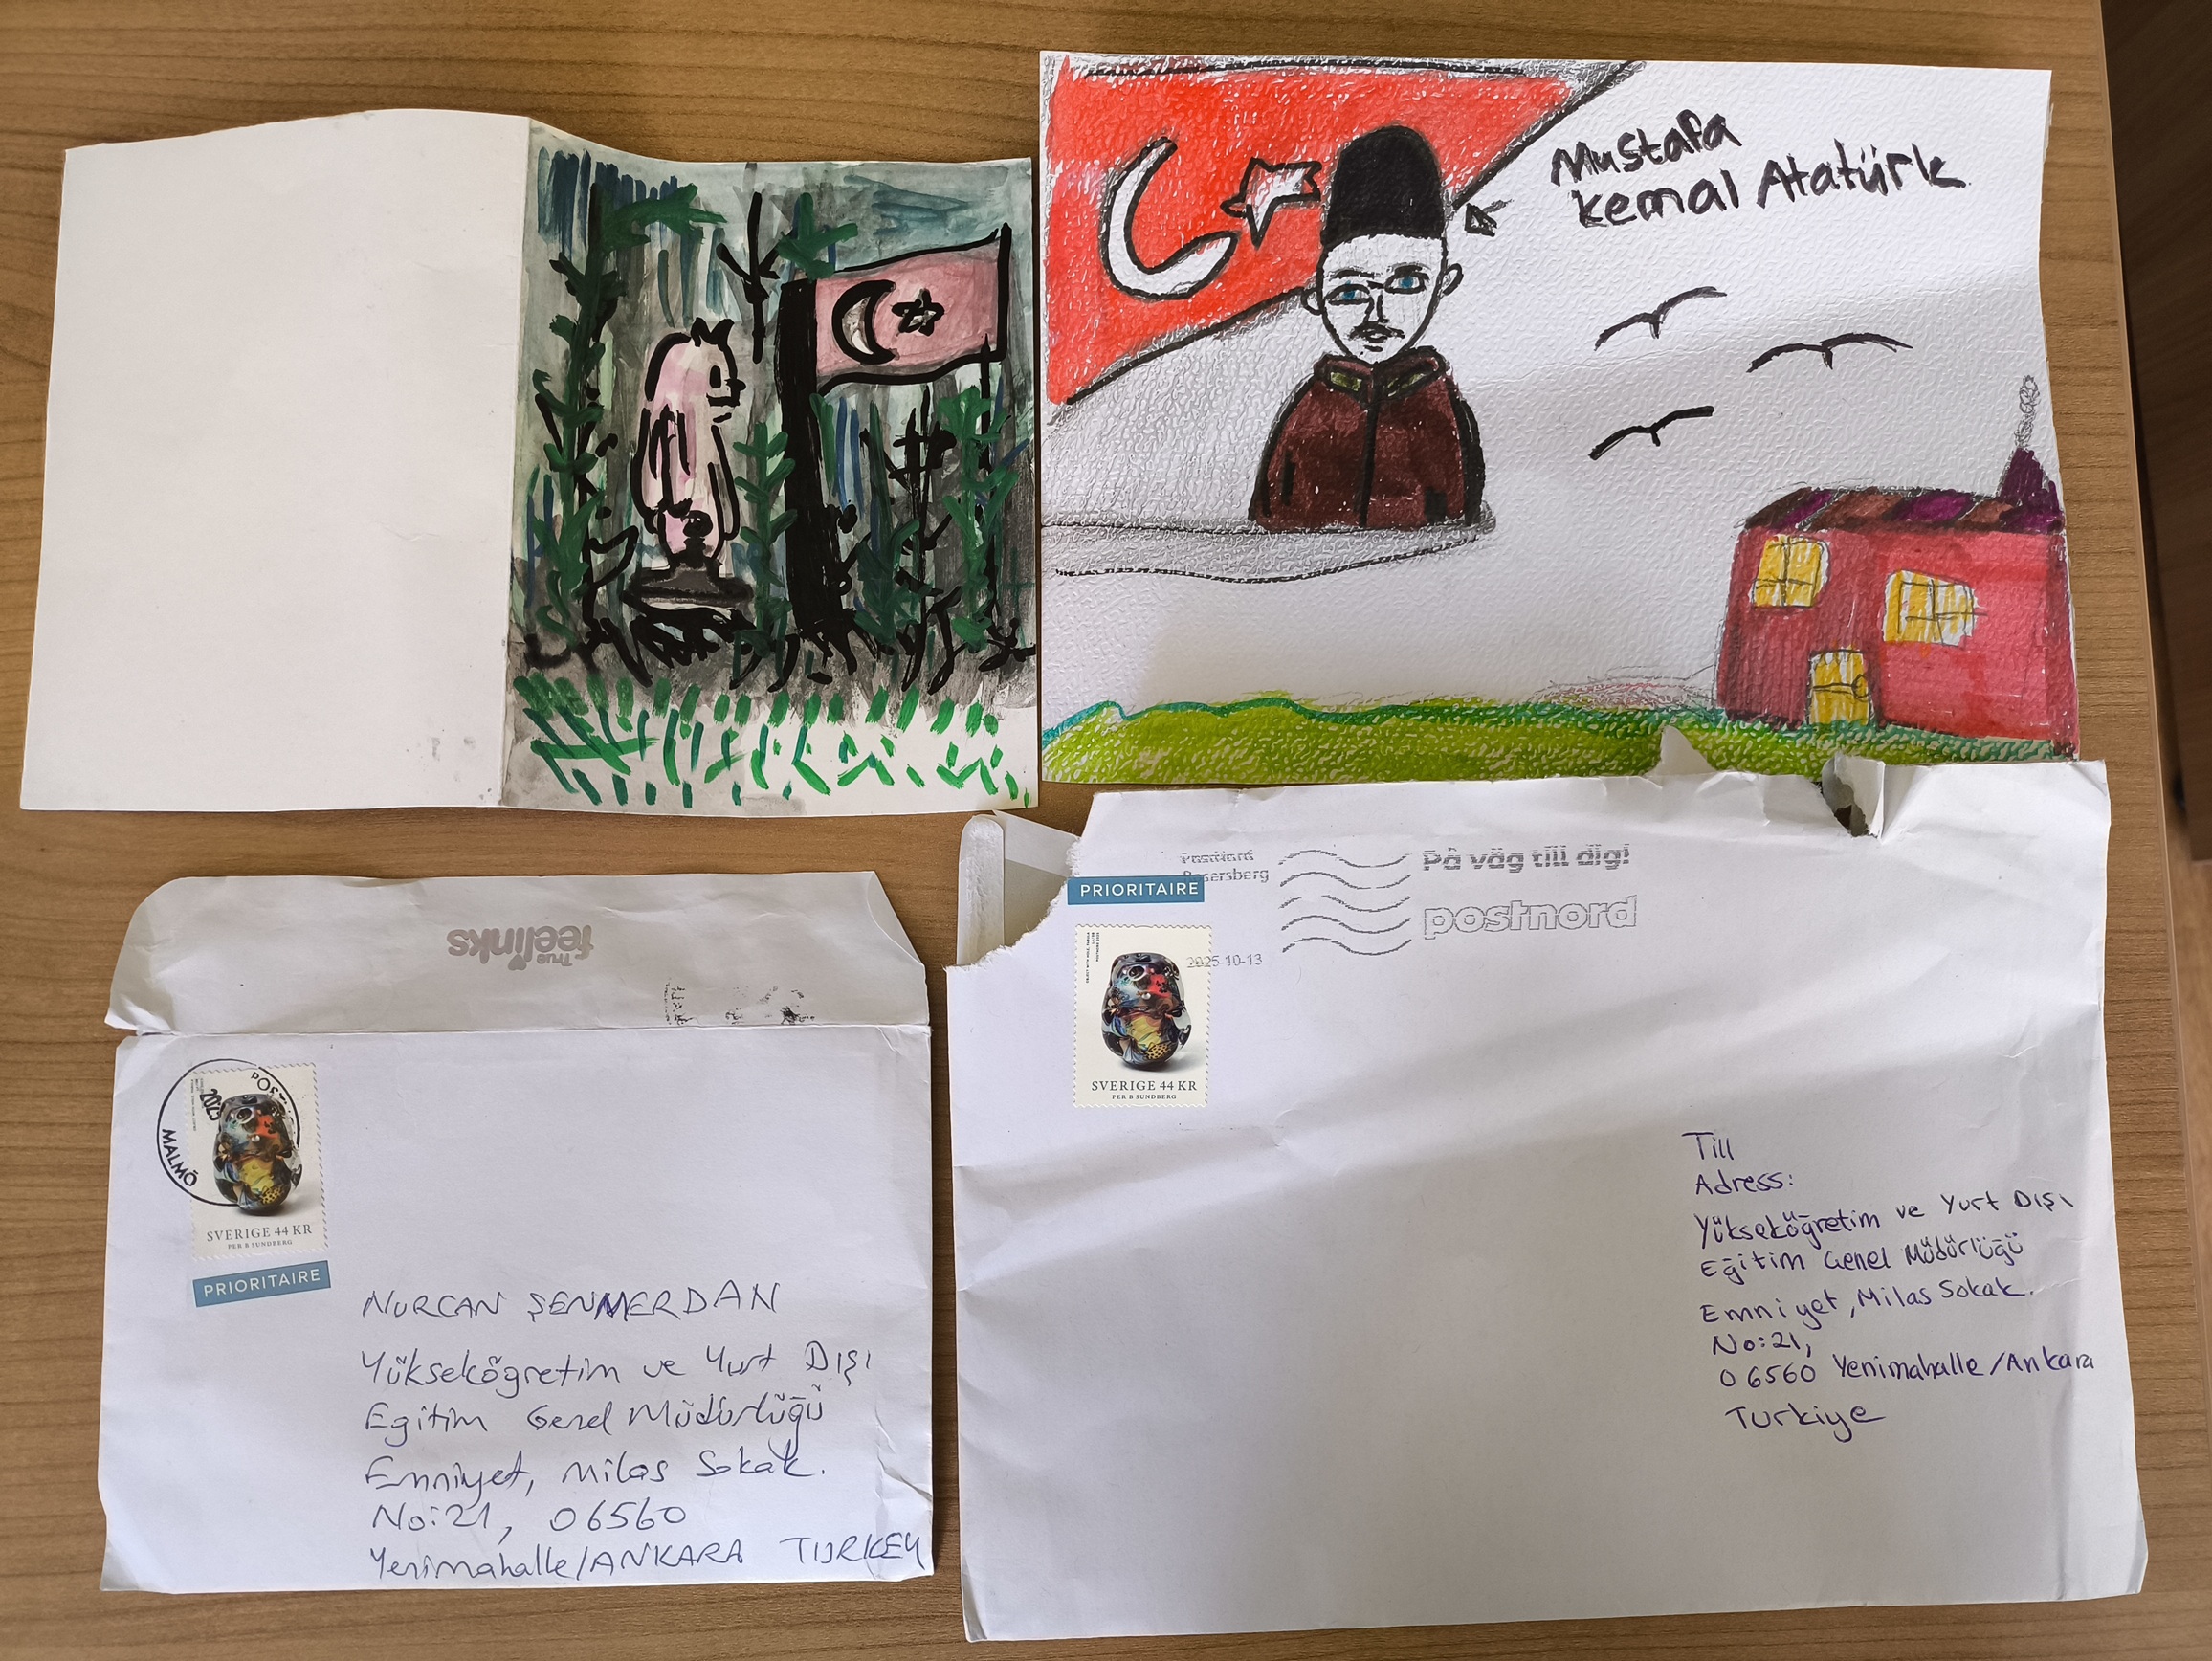 Mustafa
Kemal Atatürk
True
feelinks
MALMÖ
SVERIGE 44 KR
PER B SUNDBERG
PRIORITAIRE
NURCAN ŞENMERDAN
Yükseköğretim ve Yurt Dışı
Egitim Genel Müdürlüğü
Emniyet, Milas Sokak.
No:21, 06560
Yenimahalle/ANKARA TURKEY
PostNord
Rosersberg
På väg till dig!
PRIORITAIRE
postnord
2025-10-13
SVERIGE 44 KR
PER B SUNDBERG
Till
Adress:
Yükseköğretim ve Yurt Dışı
Eğitim Genel Müdürlüğü
Emniyet, Milas Sokak.
No:21,
06560 Yenimahalle/Ankara
Turkiye